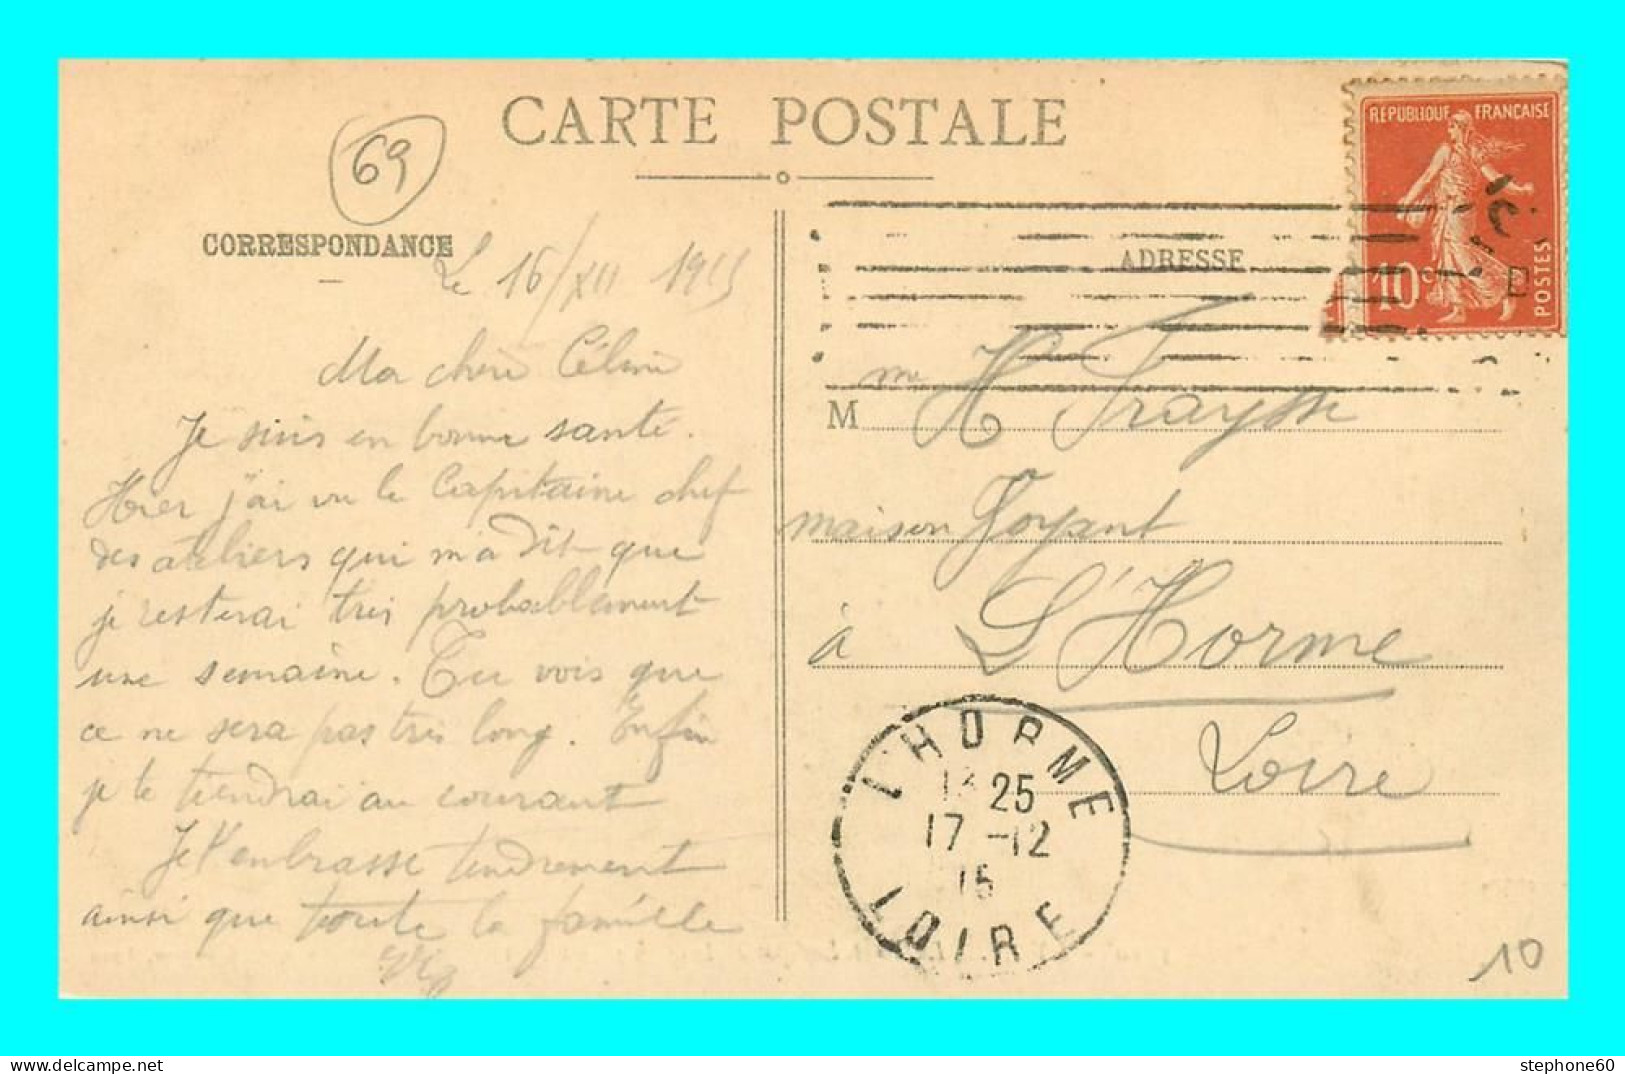 CARTE POSTALE
69
CORRESPONDANCE
ADRESSE
REPUBLIQUE FRANÇAISE
10c
POSTES
Le 16/XII 1915
Ma chère Céline
Je suis en bonne santé.
Hier j'ai vu le Capitaine chef
des ateliers qui m'a dit que
je resterai très probablement
une semaine. Tu vois que
ce ne sera pas très long. Enfin
je te tiendrai au courant
Je t'embrasse tendrement
ainsi que toute la famille
M me H Fraysse
maison Goyant
à L'Horme
Loire
L'HORME
25
17-12
15
LOIRE
10
stephone60